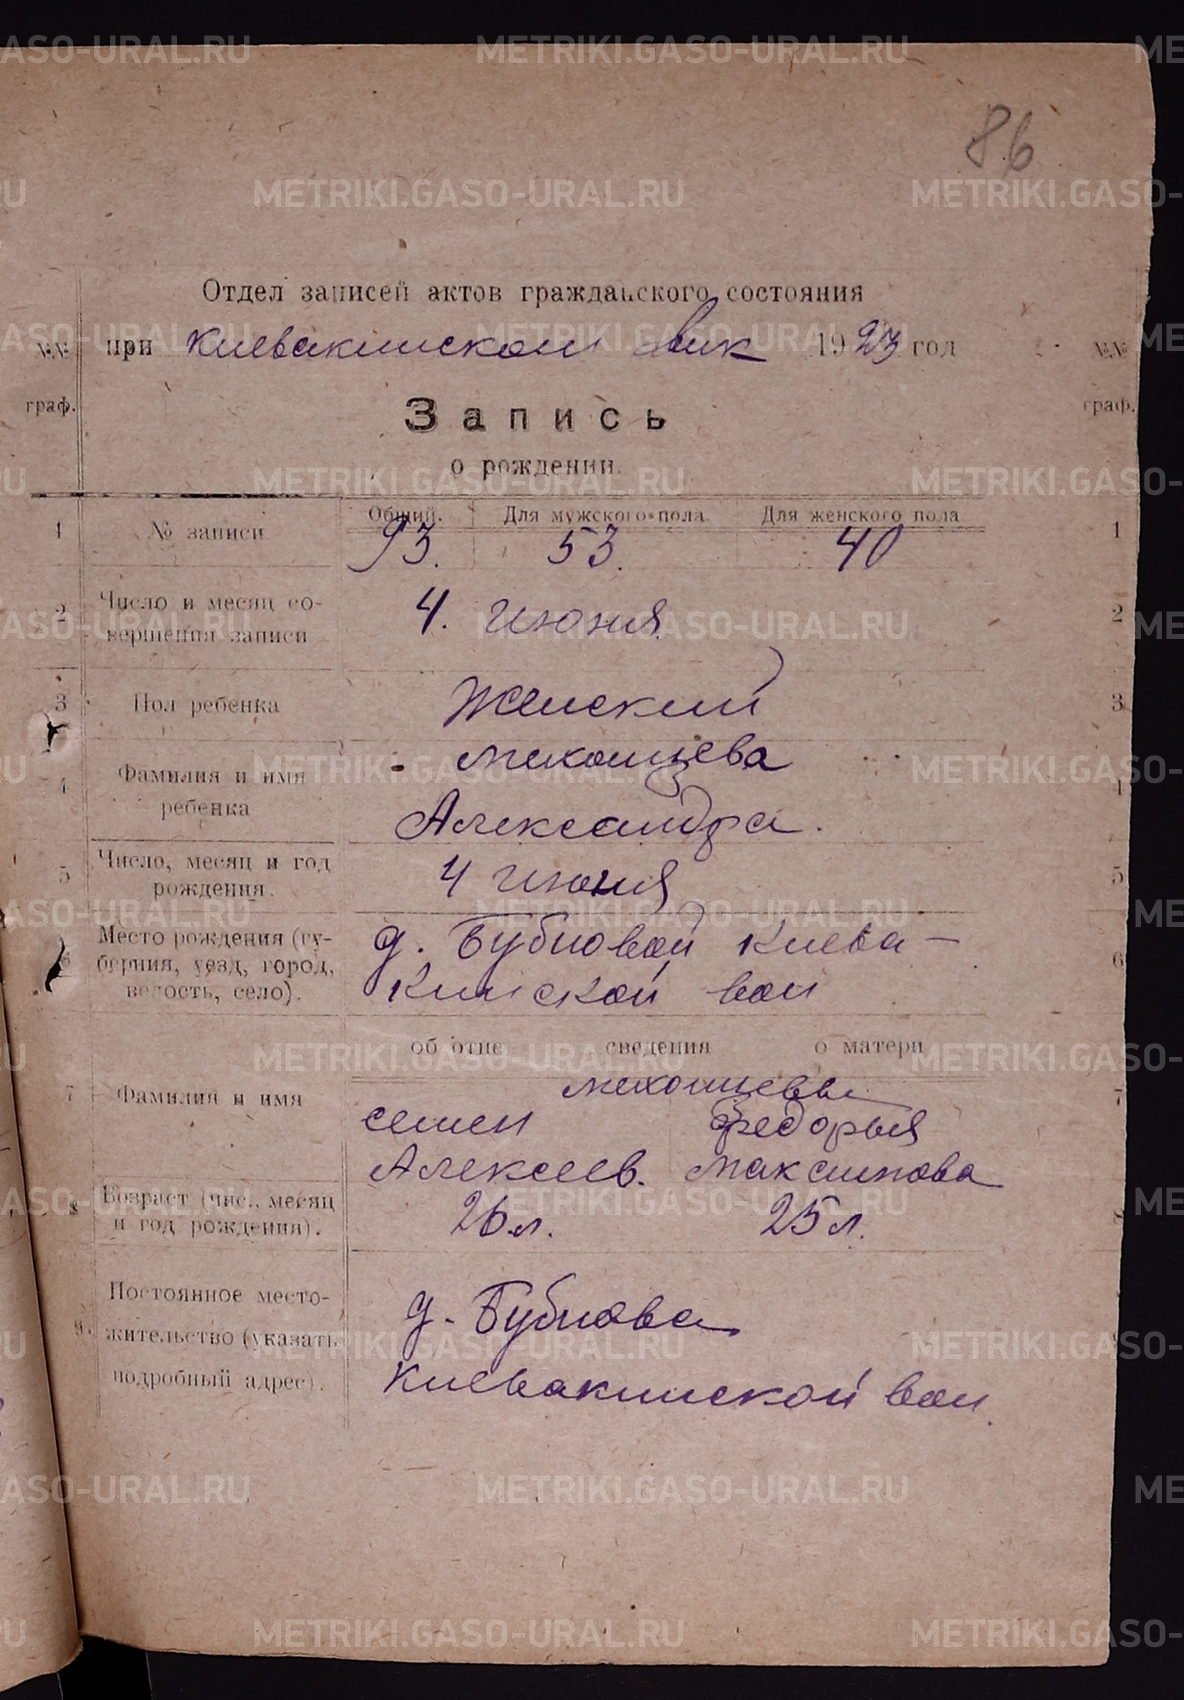 86
Отдел записей актов гражданского состояния
при Киевакинском вик 1923 год
№№ граф.
№№ граф.
Запись
о рождении.
Общий. Для мужского пола. Для женского пола
1 № записи 93. 53. 40 1
2 Число и месяц совершения записи 4. июня 2
3 Пол ребенка Женский 3
4 Фамилия и имя ребенка Мехонцева 4
Александра.
5 Число, месяц и год рождения. 4 июня 5
6 Место рождения (губерния, уезд, город, волость, село). д. Бубновой Киева- 6
кинской вол
об отце сведения о матери
7 Фамилия и имя Мехонцевы 7
Семен Федорья
Алексеев. Максимова
8 Возраст (чис., месяц и год рождения). 26 л. 25 л. 8
9 Постоянное местожительство (указать подробный адрес). д. Бубнова
Киевакинской вол.
METRIKI.GASO-URAL.RU